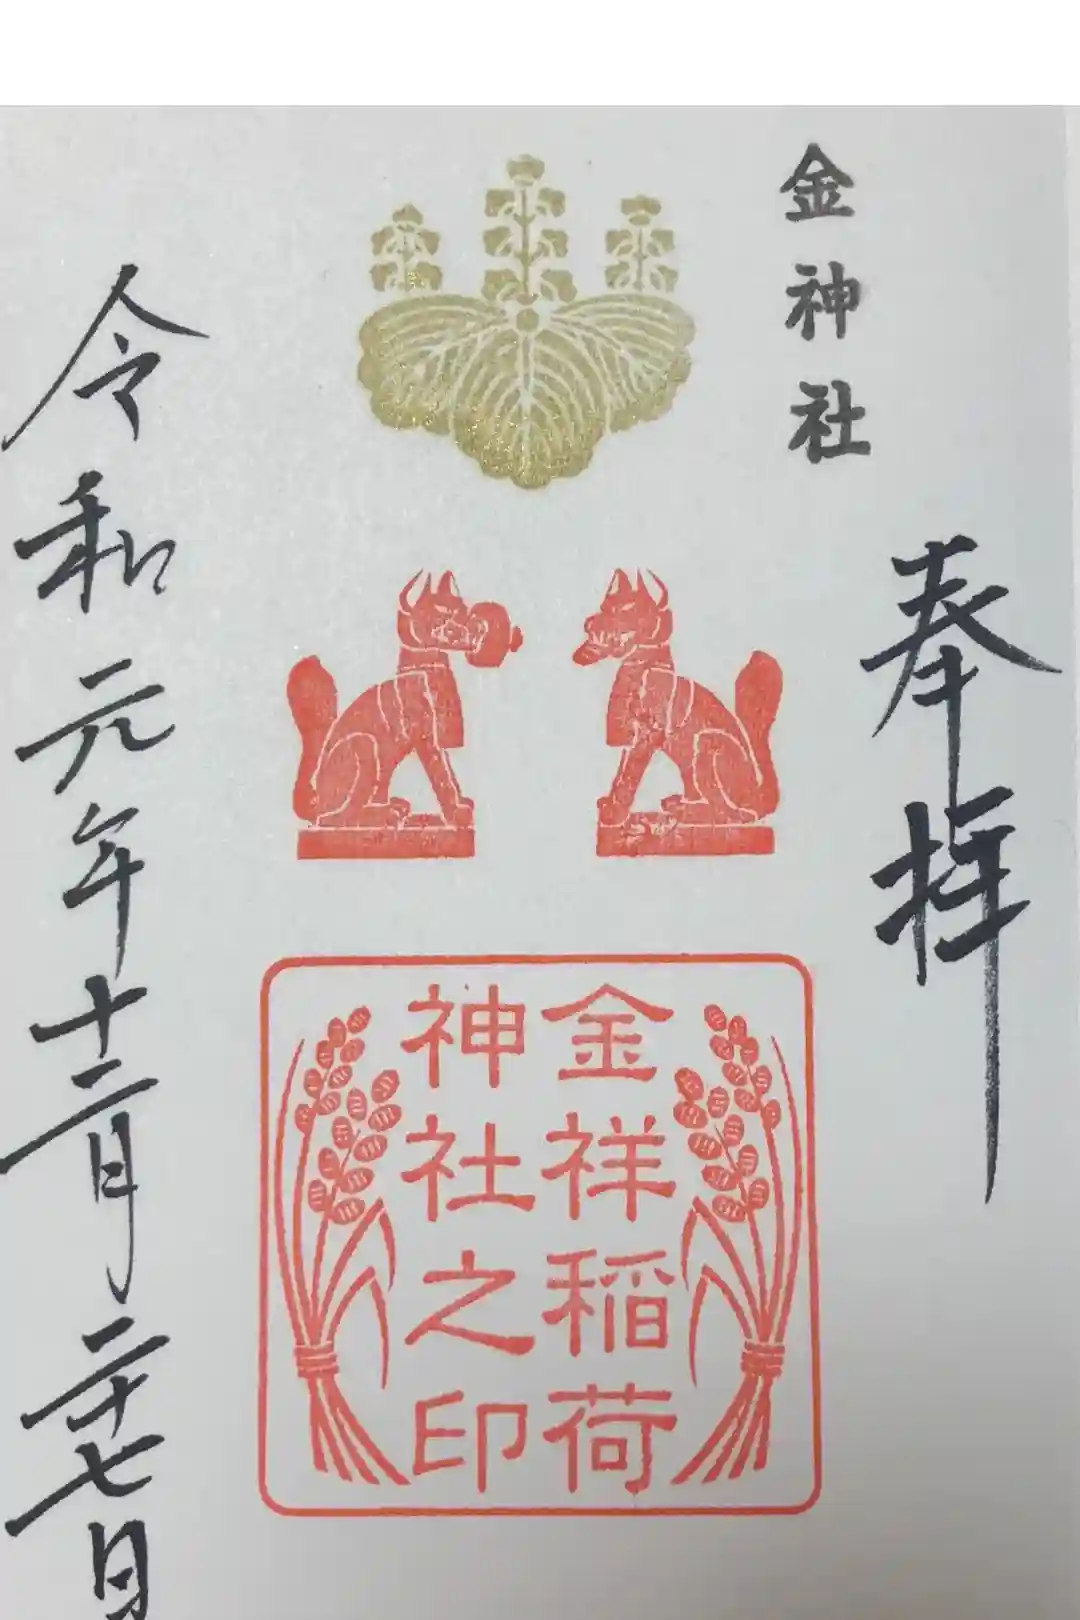 金神社
奉拝
金祥稲荷
神社之印
令和元年十二月二十七日